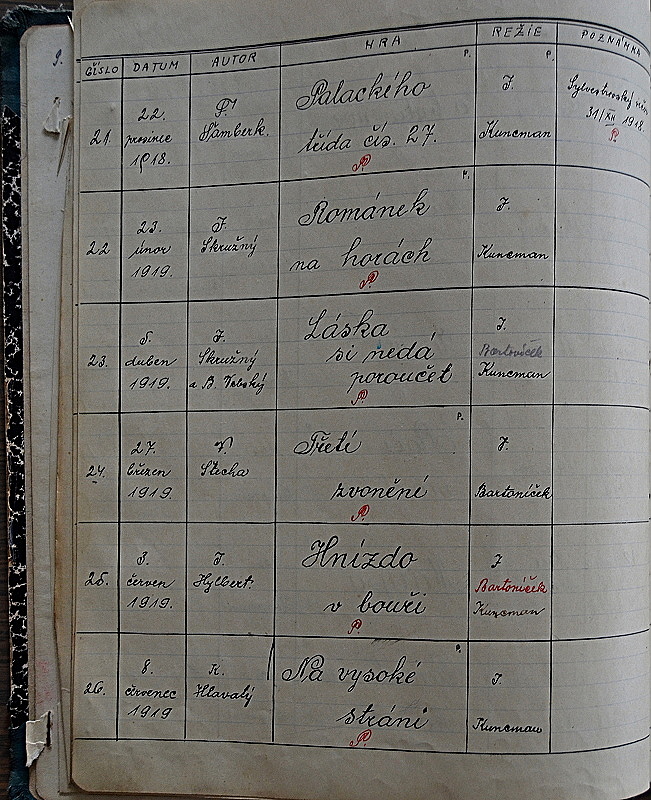 9.
ČÍSLO DATUM AUTOR HRA P. REŽIE P. POZNÁMKA
21. 22. prosinec 1918. Šamberk. Palackého třída čís. 27. P. J. Kuncman Sylvestrovský 31/XII 1918. P.
22 23. únor 1919. F. Skružný Románek na horách P. P. J. Kuncman
23. 5. duben 1919. J. Skružný a B. Vrbský Láska si nedá poroučet P. J. Bartoníček Kuncman
24. 27. březen 1919. V. Štecha Třetí zvonění P. P. J. Bartoníček
25. 3. červen 1919. Hylbert. Hnízdo v bouři P. J Bartoníček Kuncman
26. 8. červenec 1919 K. Hlavatý Na vysoké stráni P. P. J. Kuncman